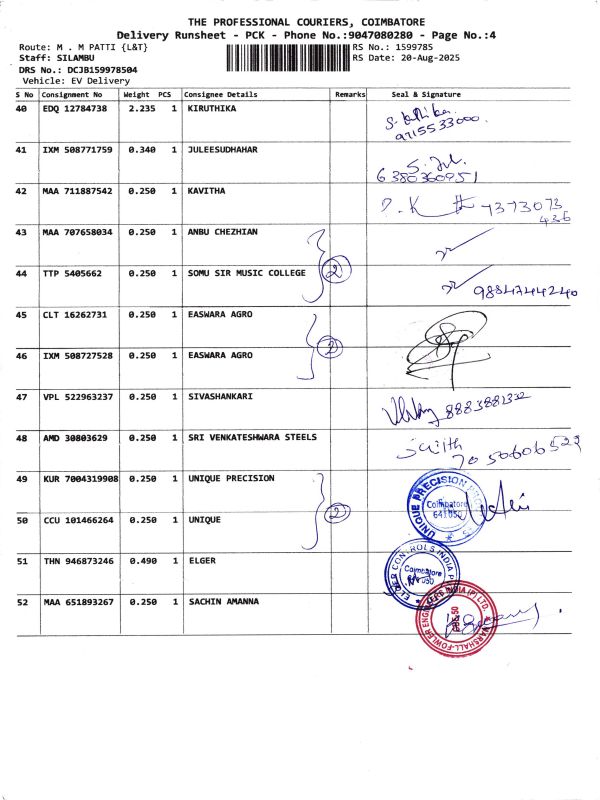 THE PROFESSIONAL COURIERS, COIMBATORE
Delivery Runsheet - PCK - Phone No.:9047080280 - Page No.:4
Route: M . M PATTI {L&T} RS No.: 1599785
Staff: SILAMBU RS Date: 20-Aug-2025
DRS No.: DCJB159978504
Vehicle: EV Delivery
S No Consignment No Weight PCS Consignee Details Remarks Seal & Signature
40 EDQ 12784738 2.235 1 KIRUTHIKA
9715533000.
41 IXM 508771759 0.340 1 JULEESUDHAHAR
6380360951
42 MAA 711887542 0.250 1 KAVITHA
7373073
436
43 MAA 707658034 0.250 1 ANBU CHEZHIAN
2
44 TTP 5405662 0.250 1 SOMU SIR MUSIC COLLEGE
9884744240
45 CLT 16262731 0.250 1 EASWARA AGRO
2
46 IXM 508727528 0.250 1 EASWARA AGRO
47 VPL 522963237 0.250 1 SIVASHANKARI
48 AMD 30803629 0.250 1 SRI VENKATESHWARA STEELS
49 KUR 7004319908 0.250 1 UNIQUE PRECISION
UNIQUE PRECISION
Coimbatore
2
50 CCU 101466264 0.250 1 UNIQUE
51 THN 946873246 0.490 1 ELGER
ELGER CONTROLS INDIA P
Coimbatore
52 MAA 651893267 0.250 1 SACHIN AMANNA
MARSHALL-FOWLER ENGINEERS INDIA (P) LTD.